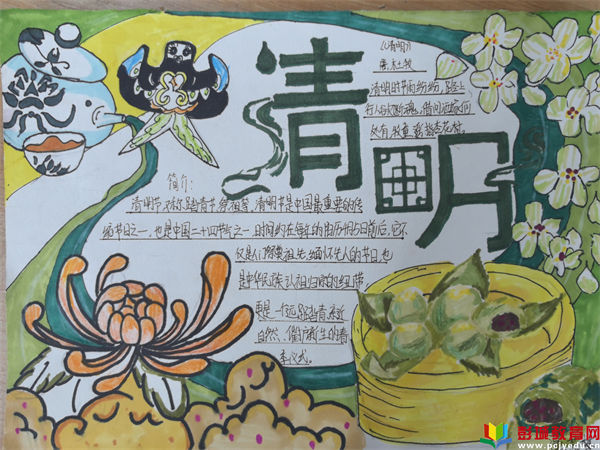 清明
《清明》
唐·杜牧
清明时节雨纷纷，路上
行人欲断魂。借问酒家何
处有，牧童遥指杏花村。
简介：
清明节，又称踏青节、祭祖节，清明节是中国最重要的传
统节日之一，也是中国二十四节气之一，时间约在每年的阳历4月5日前后。它不
仅是人们祭奠祖先、缅怀先人的节日，也
是中华民族认祖归宗的纽带，
更是一个远足踏青、亲近
自然、催护新生的春
季仪式。
彭城教育网
www.pcjyedu.cn